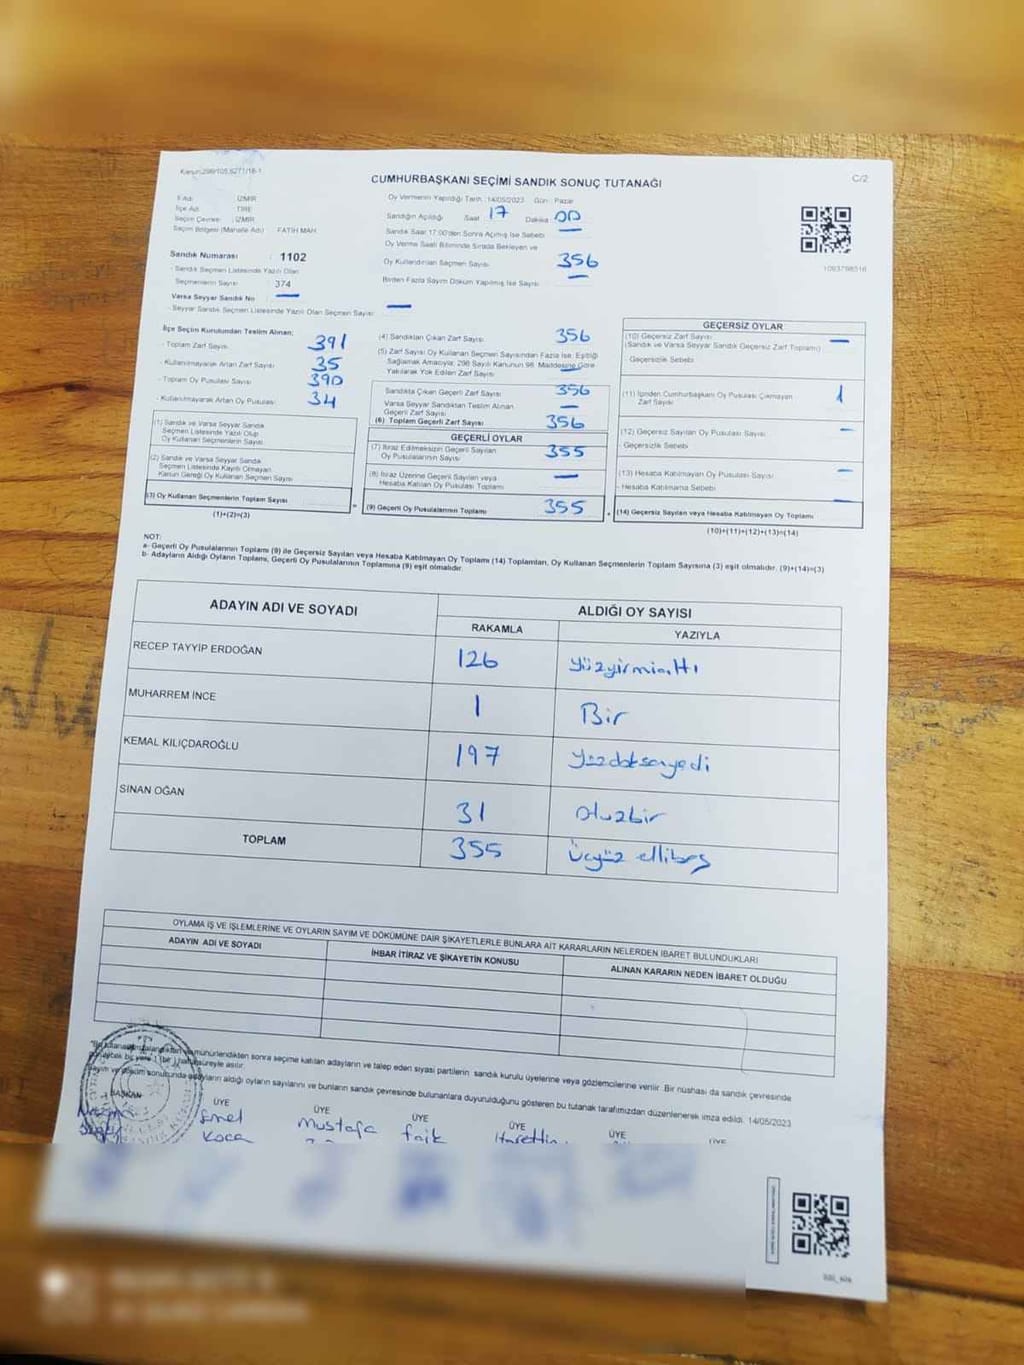 Kanun:298/105,6271/18-1
CUMHURBAŞKANI SEÇİMİ SANDIK SONUÇ TUTANAĞI
C/2
İl Adı : İZMİR
İlçe Adı : TİRE
Seçim Çevresi : İZMİR
Seçim Bölgesi (Mahalle Adı) : FATİH MAH.
Oy Vermenin Yapıldığı Tarih : 14/05/2023 Gün : Pazar
Sandığın Açıldığı Saat : 17 Dakika : 00
Sandık Saat 17:00'den Sonra Açılmış İse Sebebi
Oy Verme Saati Bitiminde Sırada Bekleyen ve
Oy Kullandırılan Seçmen Sayısı 356
Birden Fazla Sayım Döküm Yapılmış İse Sayısı
1093798516
Sandık Numarası : 1102
- Sandık Seçmen Listesinde Yazılı Olan
Seçmenlerin Sayısı : 374
Varsa Seyyar Sandık No —
- Seyyar Sandık Seçmen Listesinde Yazılı Olan Seçmen Sayısı: —
İlçe Seçim Kurulundan Teslim Alınan;
- Toplam Zarf Sayısı 391
- Kullanılmayarak Artan Zarf Sayısı 35
- Toplam Oy Pusulası Sayısı 390
- Kullanılmayarak Artan Oy Pusulası 34
(1) Sandık ve Varsa Seyyar Sandık
Seçmen Listesinde Yazılı Olup
Oy Kullanan Seçmenlerin Sayısı
(2) Sandık ve Varsa Seyyar Sandık
Seçmen Listesinde Kayıtlı Olmayan
Kanun Gereği Oy Kullanan Seçmen Sayısı
(3) Oy Kullanan Seçmenlerin Toplam Sayısı
(1)+(2)=(3)
(4) Sandıktan Çıkan Zarf Sayısı 356
(5) Zarf Sayısı Oy Kullanan Seçmen Sayısından Fazla İse; Eşitliği
Sağlamak Amacıyla; 298 Sayılı Kanunun 98. Maddesine Göre
Yakılarak Yok Edilen Zarf Sayısı —
Sandıkta Çıkan Geçerli Zarf Sayısı 356
Varsa Seyyar Sandıktan Teslim Alınan
Geçerli Zarf Sayısı —
(6) Toplam Geçerli Zarf Sayısı 356
GEÇERLİ OYLAR
(7) İtiraz Edilmeksizin Geçerli Sayılan
Oy Pusulalarının Sayısı 355
(8) İtiraz Üzerine Geçerli Sayılan veya
Hesaba Katılan Oy Pusulası Toplamı —
(9) Geçerli Oy Pusulalarının Toplamı 355
GEÇERSİZ OYLAR
(10) Geçersiz Zarf Sayısı
(Sandık ve Varsa Seyyar Sandık Geçersiz Zarf Toplamı) —
Geçersizlik Sebebi
(11) İçinden Cumhurbaşkanı Oy Pusulası Çıkmayan
Zarf Sayısı 1
(12) Geçersiz Sayılan Oy Pusulası Sayısı —
Geçersizlik Sebebi
(13) Hesaba Katılmayan Oy Pusulası Sayısı —
- Hesaba Katılmama Sebebi —
(14) Geçersiz Sayılan veya Hesaba Katılmayan Oy Toplamı
(10)+(11)+(12)+(13)=(14)
NOT:
a- Geçerli Oy Pusulalarının Toplamı (9) ile Geçersiz Sayılan veya Hesaba Katılmayan Oy Toplamı (14) Toplamları, Oy Kullanan Seçmenlerin Toplam Sayısına (3) eşit olmalıdır. (9)+(14)=(3)
b- Adayların Aldığı Oyların Toplamı, Geçerli Oy Pusulalarının Toplamına (9) eşit olmalıdır.
ADAYIN ADI VE SOYADI ALDIĞI OY SAYISI
RAKAMLA YAZIYLA
RECEP TAYYİP ERDOĞAN 126 Yüzyirmialtı
MUHARREM İNCE 1 Bir
KEMAL KILIÇDAROĞLU 197 Yüzdoksanyedi
SİNAN OĞAN 31 Otuzbir
TOPLAM 355 Üçyüz ellibeş
OYLAMA İŞ VE İŞLEMLERİNE VE OYLARIN SAYIM VE DÖKÜMÜNE DAİR ŞİKAYETLERLE BUNLARA AİT KARARLARIN NELERDEN İBARET BULUNDUKLARI
ADAYIN ADI VE SOYADI İHBAR İTİRAZ VE ŞİKAYETİN KONUSU ALINAN KARARIN NEDEN İBARET OLDUĞU
mühürlendikten sonra seçime katılan adayların ve talep eden siyasi partilerin sandık kurulu üyelerine veya gözlemcilerine verilir. Bir nüshası da sandık çevresinde
süreyle asılır.
adayların aldığı oyların sayılarını ve bunların sandık çevresinde bulunanlara duyurulduğunu gösteren bu tutanak tarafımızdan düzenlenerek imza edildi. 14/05/2023
BAŞKAN ÜYE ÜYE ÜYE ÜYE ÜYE ÜYE
Mustafa Faik
Koca